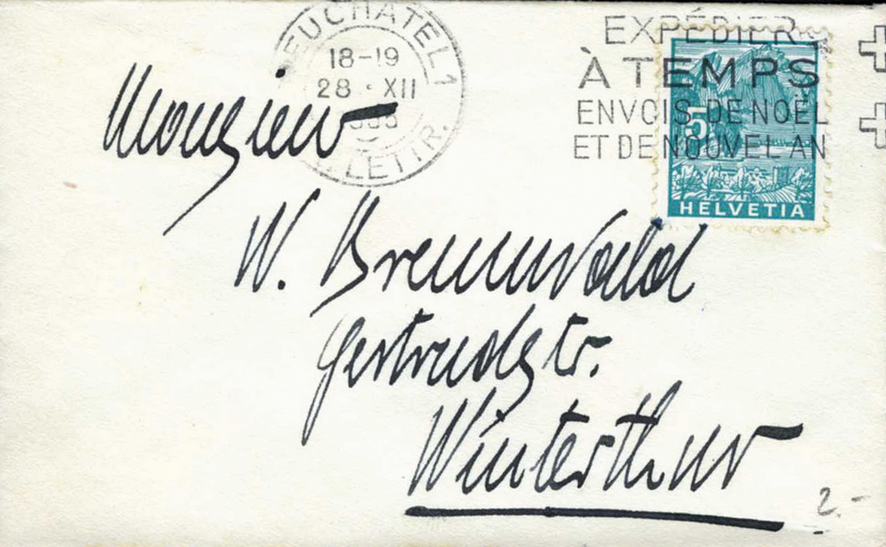 NEUCHATEL 1
18-19
28 · XII
LETTR.
EXPÉDIER
À TEMPS
ENVOIS DE NOËL
ET DE NOUVEL AN
5
HELVETIA
Monsieur
W. Brennwald
Gertrudstr.
Winterthur
2.-